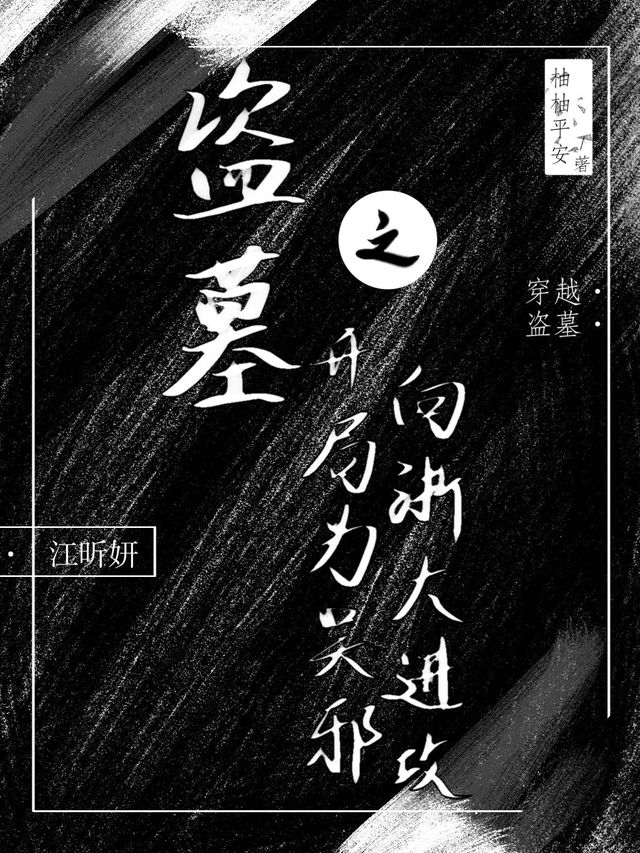 盗墓
之
开局为吴邪
向浙大进攻
柚柚平安
著
穿越
盗墓
江昕妍